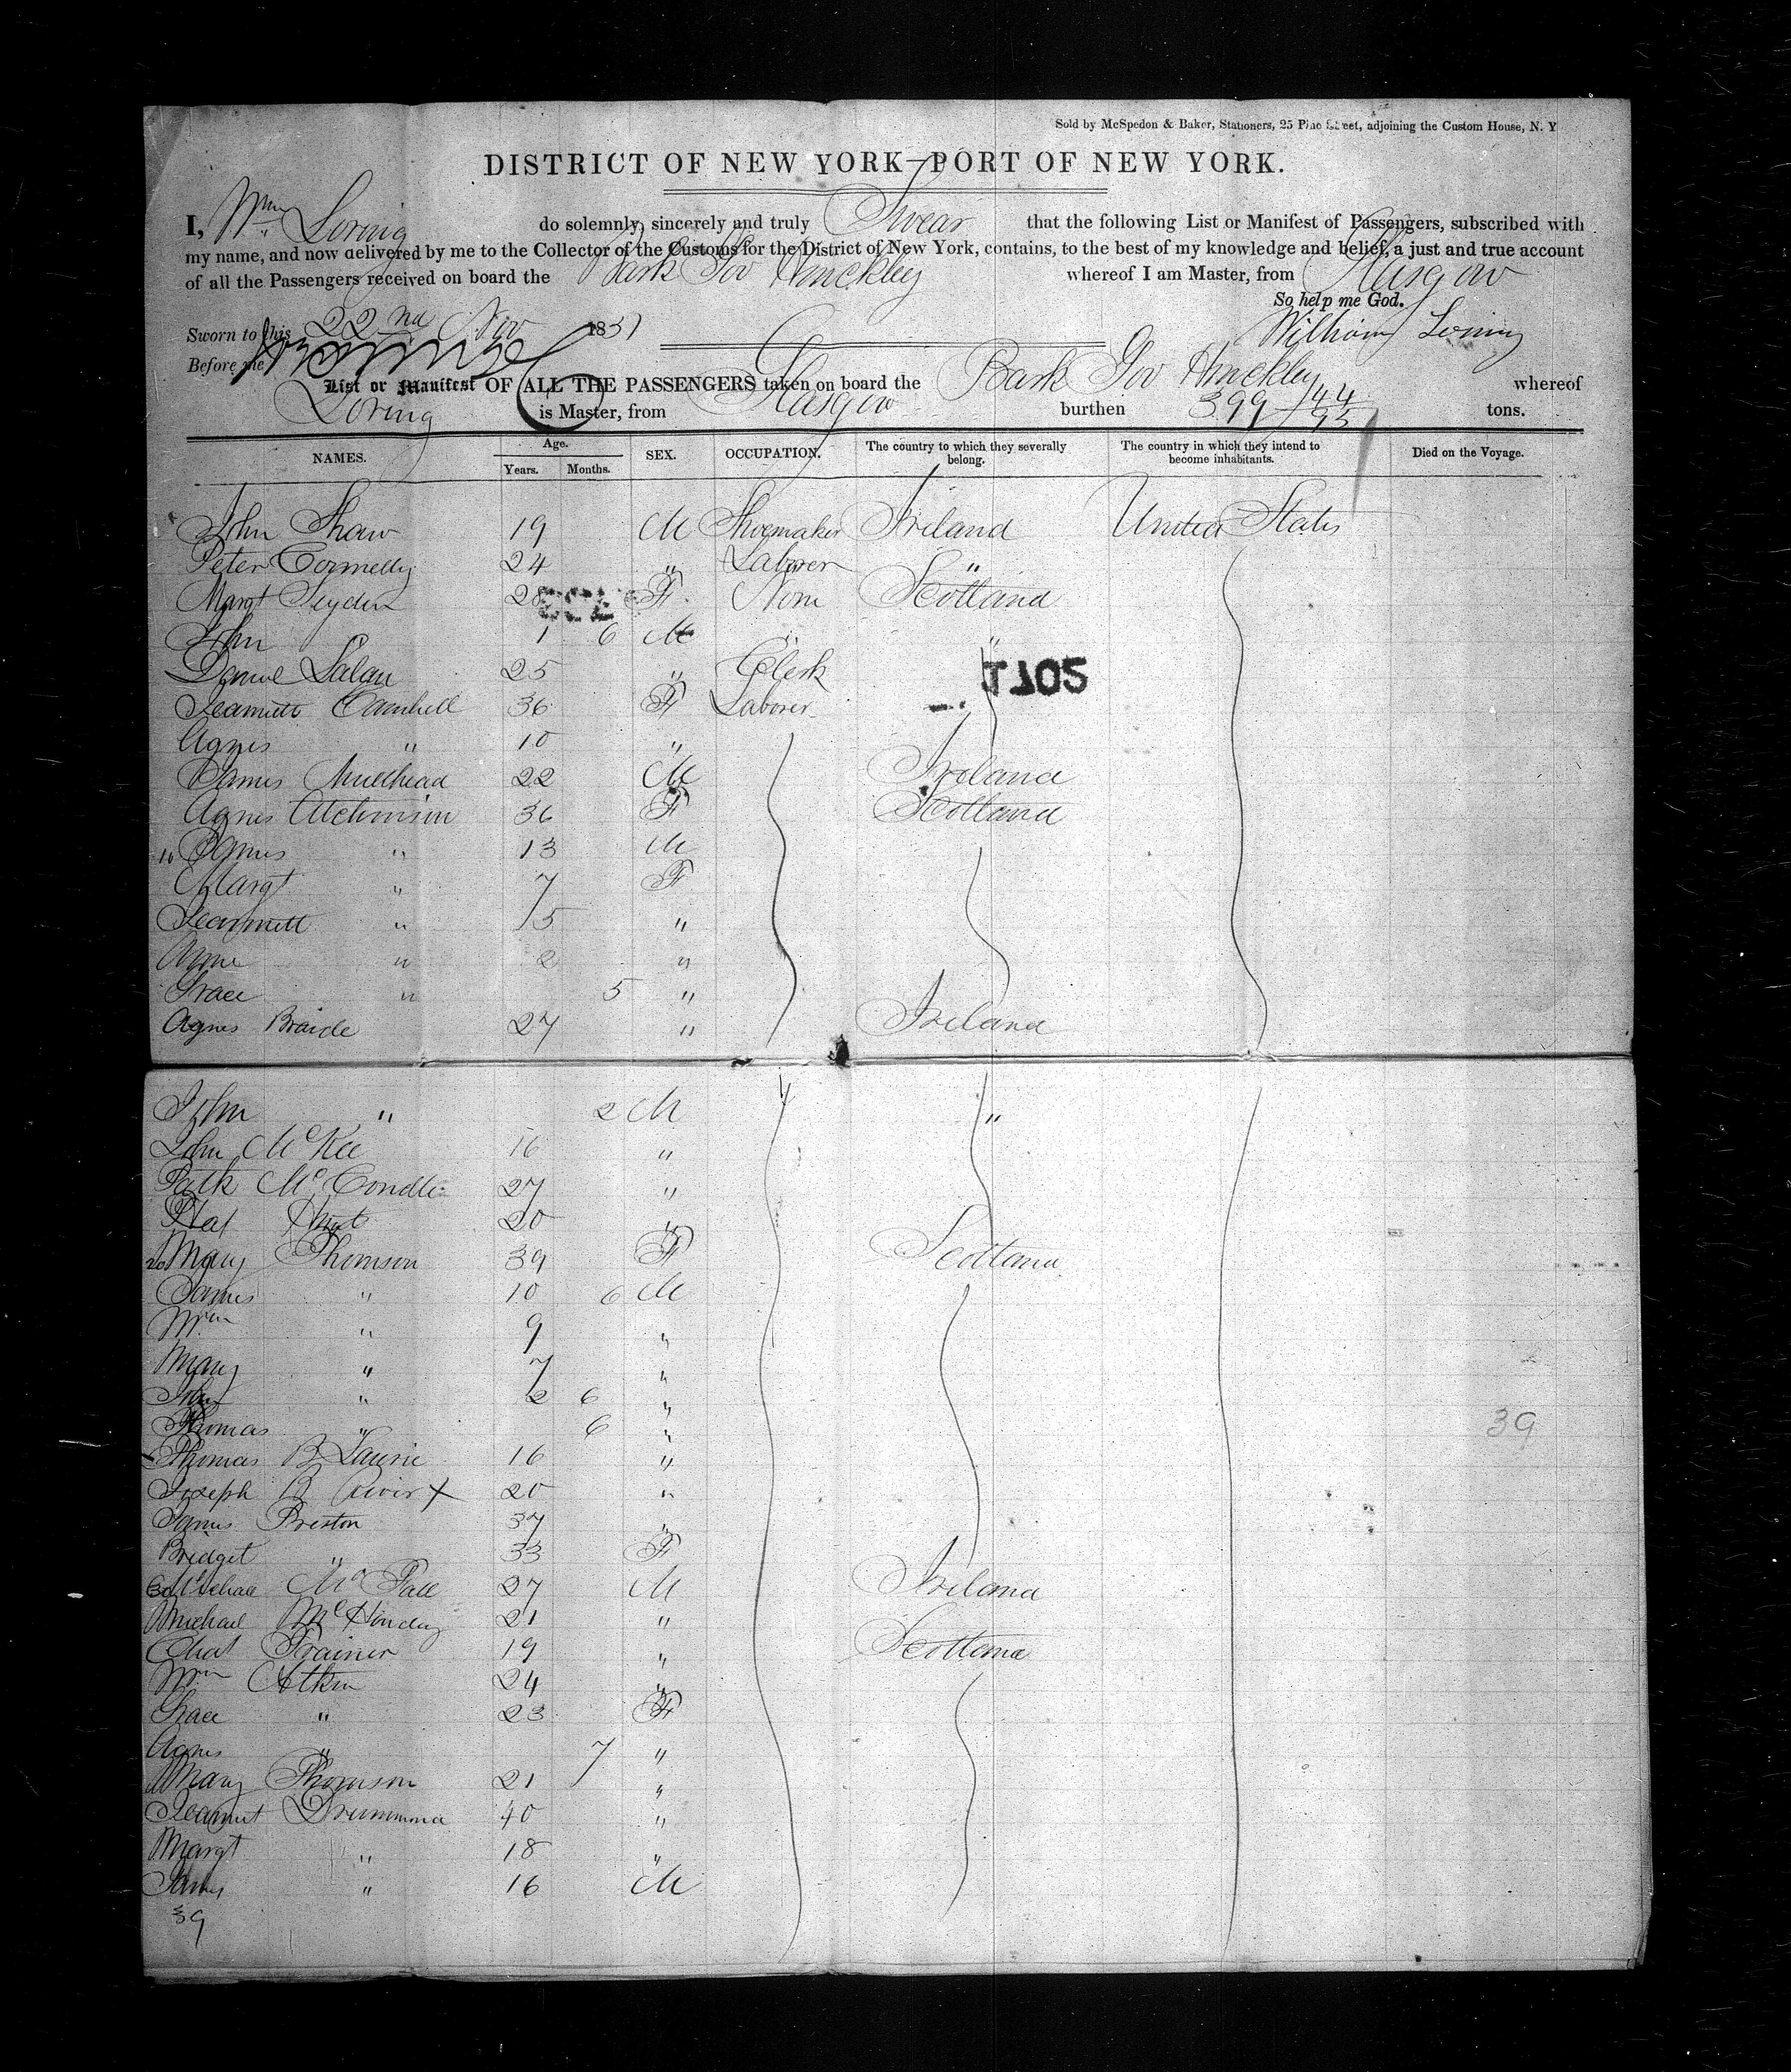 Sold by McSpedon & Baker, Stationers, 25 Pine Street, adjoining the Custom House, N. Y
DISTRICT OF NEW YORK—PORT OF NEW YORK.
I, Wm Loring do solemnly, sincerely and truly Swear that the following List or Manifest of Passengers, subscribed with
my name, and now delivered by me to the Collector of the Customs for the District of New York, contains, to the best of my knowledge and belief, a just and true account
of all the Passengers received on board the Bark Gov Hinckley whereof I am Master, from Glasgow
So help me God.
Sworn to this 22nd Nov 1851 William Loring
Before me
List or Manifest OF ALL THE PASSENGERS taken on board the Bark Gov Hinckley whereof
Loring is Master, from Glasgow burthen 399 44/95 tons.
NAMES. Age. Years. Months. SEX. OCCUPATION. The country to which they severally belong. The country in which they intend to become inhabitants. Died on the Voyage.
John Shaw 19 M Shoemaker Ireland United States
Peter Connelly 24 " Laborer "
Margt 28 F None Scotland
John 1 6 M " "
25 " Clerk
1705
Jeannett Cambell 36 F Laborer
Agnes " 10 "
James Muirhead 22 M Ireland
Agnes Atchinson 36 F Scotland
10 James " 13 M
Margt " 7 F
Jeannett " 5 "
Anne " 2 "
Grace " 5 "
Agnes Braide 27 " Ireland
John " 2 M "
John McKee 16 "
Patk McCondle 27 "
20 "
20 Mary Thomson 39 F Scotland
James " 10 6 M
Wm " 9 "
Mary " 7 "
John " 2 6 "
Thomas " 6 "
39
Thomas B Laurie 16 "
Joseph B 20 "
James Preston 37 "
Bridget " 33 F
30 Michael Mc 27 M Ireland
Michael Mc 21 "
Chas Trainer 19 " Scotland
Wm Atkin 24 "
Grace " 23 F
Agnes " 7 "
Mary Thomson 21 "
Jeannet Drummond 40 "
Margt " 18 "
James " 16 M
39